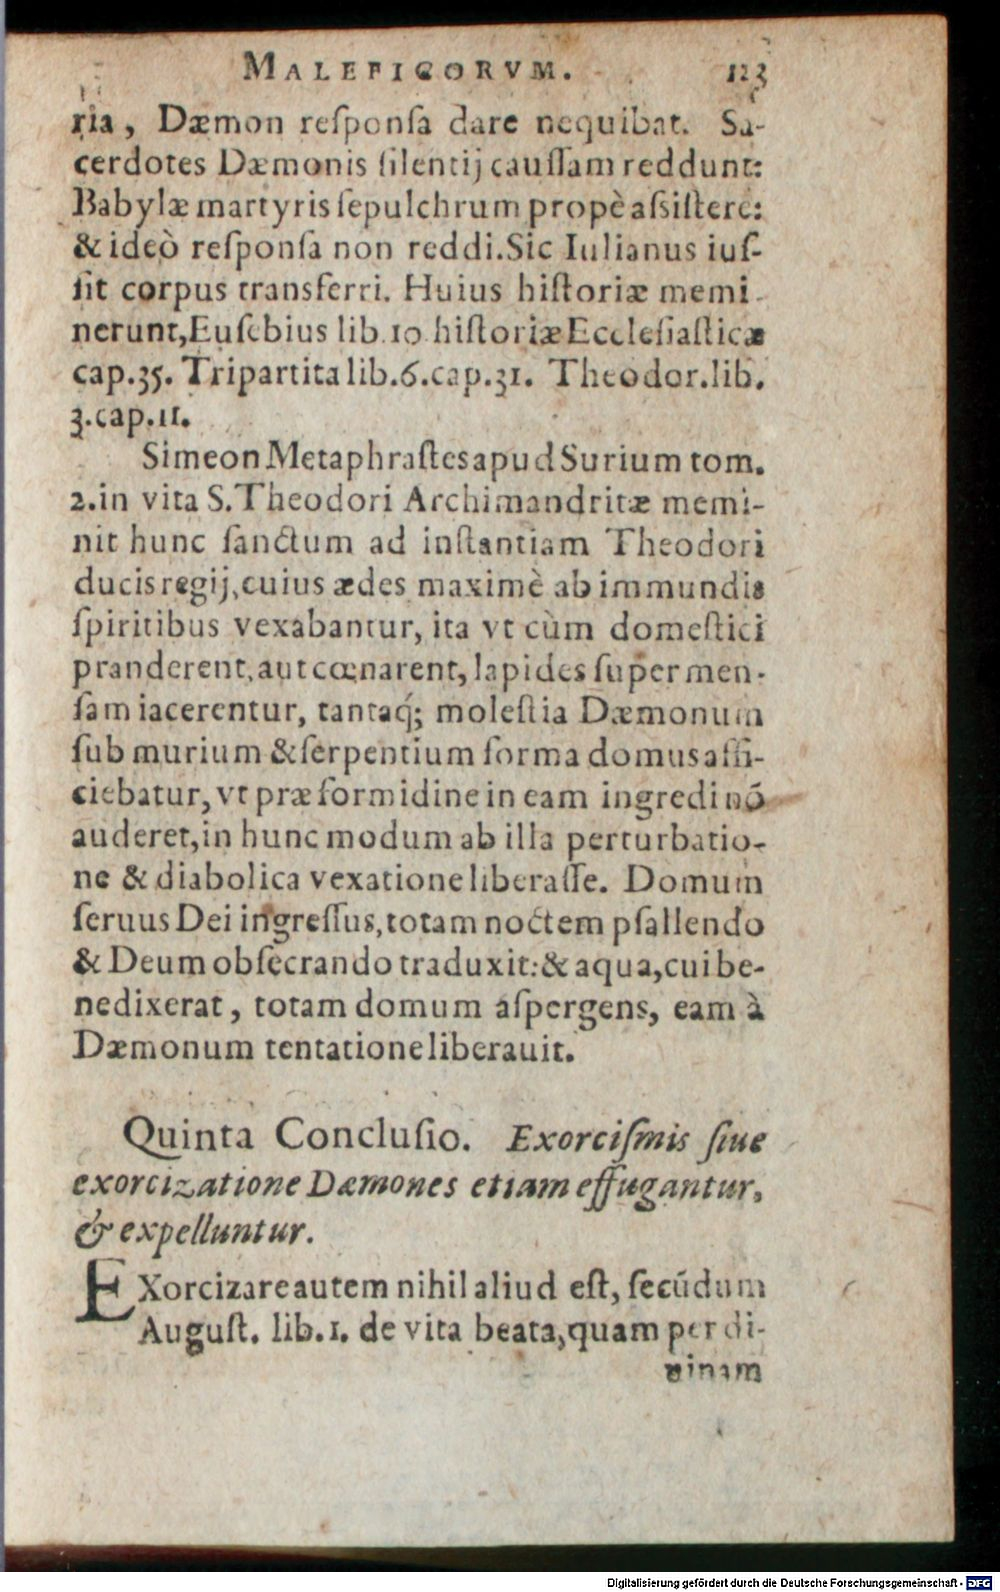 MALEFICORVM. 123
ria, Dæmon reſponſa dare nequibat. Sa-
cerdotes Dæmonis ſilentij cauſſam reddunt:
Babylæ martyris ſepulchrum propè aſsiſtere:
& ideò reſponſa non reddi. Sic Iulianus iuſ-
ſit corpus transferri. Huius hiſtoriæ memi-
nerunt, Euſebius lib. 10 hiſtoriæ Eccleſiaſticæ
cap. 35. Tripartita lib. 6. cap. 31. Theodor. lib.
3. cap. 11.
Simeon Metaphraſtes apud Surium tom.
2. in vita S. Theodori Archimandritæ memi-
nit hunc ſanctum ad inſtantiam Theodori
ducis regij, cuius ædes maximè ab immundis
ſpiritibus vexabantur, ita vt cùm domeſtici
pranderent, aut cœnarent, lapides ſuper men-
ſam iacerentur, tantaq́; moleſtia Dæmonum
ſub murium & ſerpentium forma domus affi-
ciebatur, vt præ formidine in eam ingredi nō
auderet, in hunc modum ab illa perturbatio-
ne & diabolica vexatione liberaſſe. Domum
ſeruus Dei ingreſſus, totam noctem pſallendo
& Deum obſecrando traduxit: & aqua, cui be-
nedixerat, totam domum aſpergens, eam à
Dæmonum tentatione liberauit.
Quinta Concluſio. Exorciſmis ſiue
exorcizatione Dæmones etiam effugantur,
& expelluntur.
EXorcizare autem nihil aliud eſt, ſecūdum
Auguſt. lib. 1. de vita beata, quam per di-
uinam
Digitalisierung gefördert durch die Deutsche Forschungsgemeinschaft - DFG